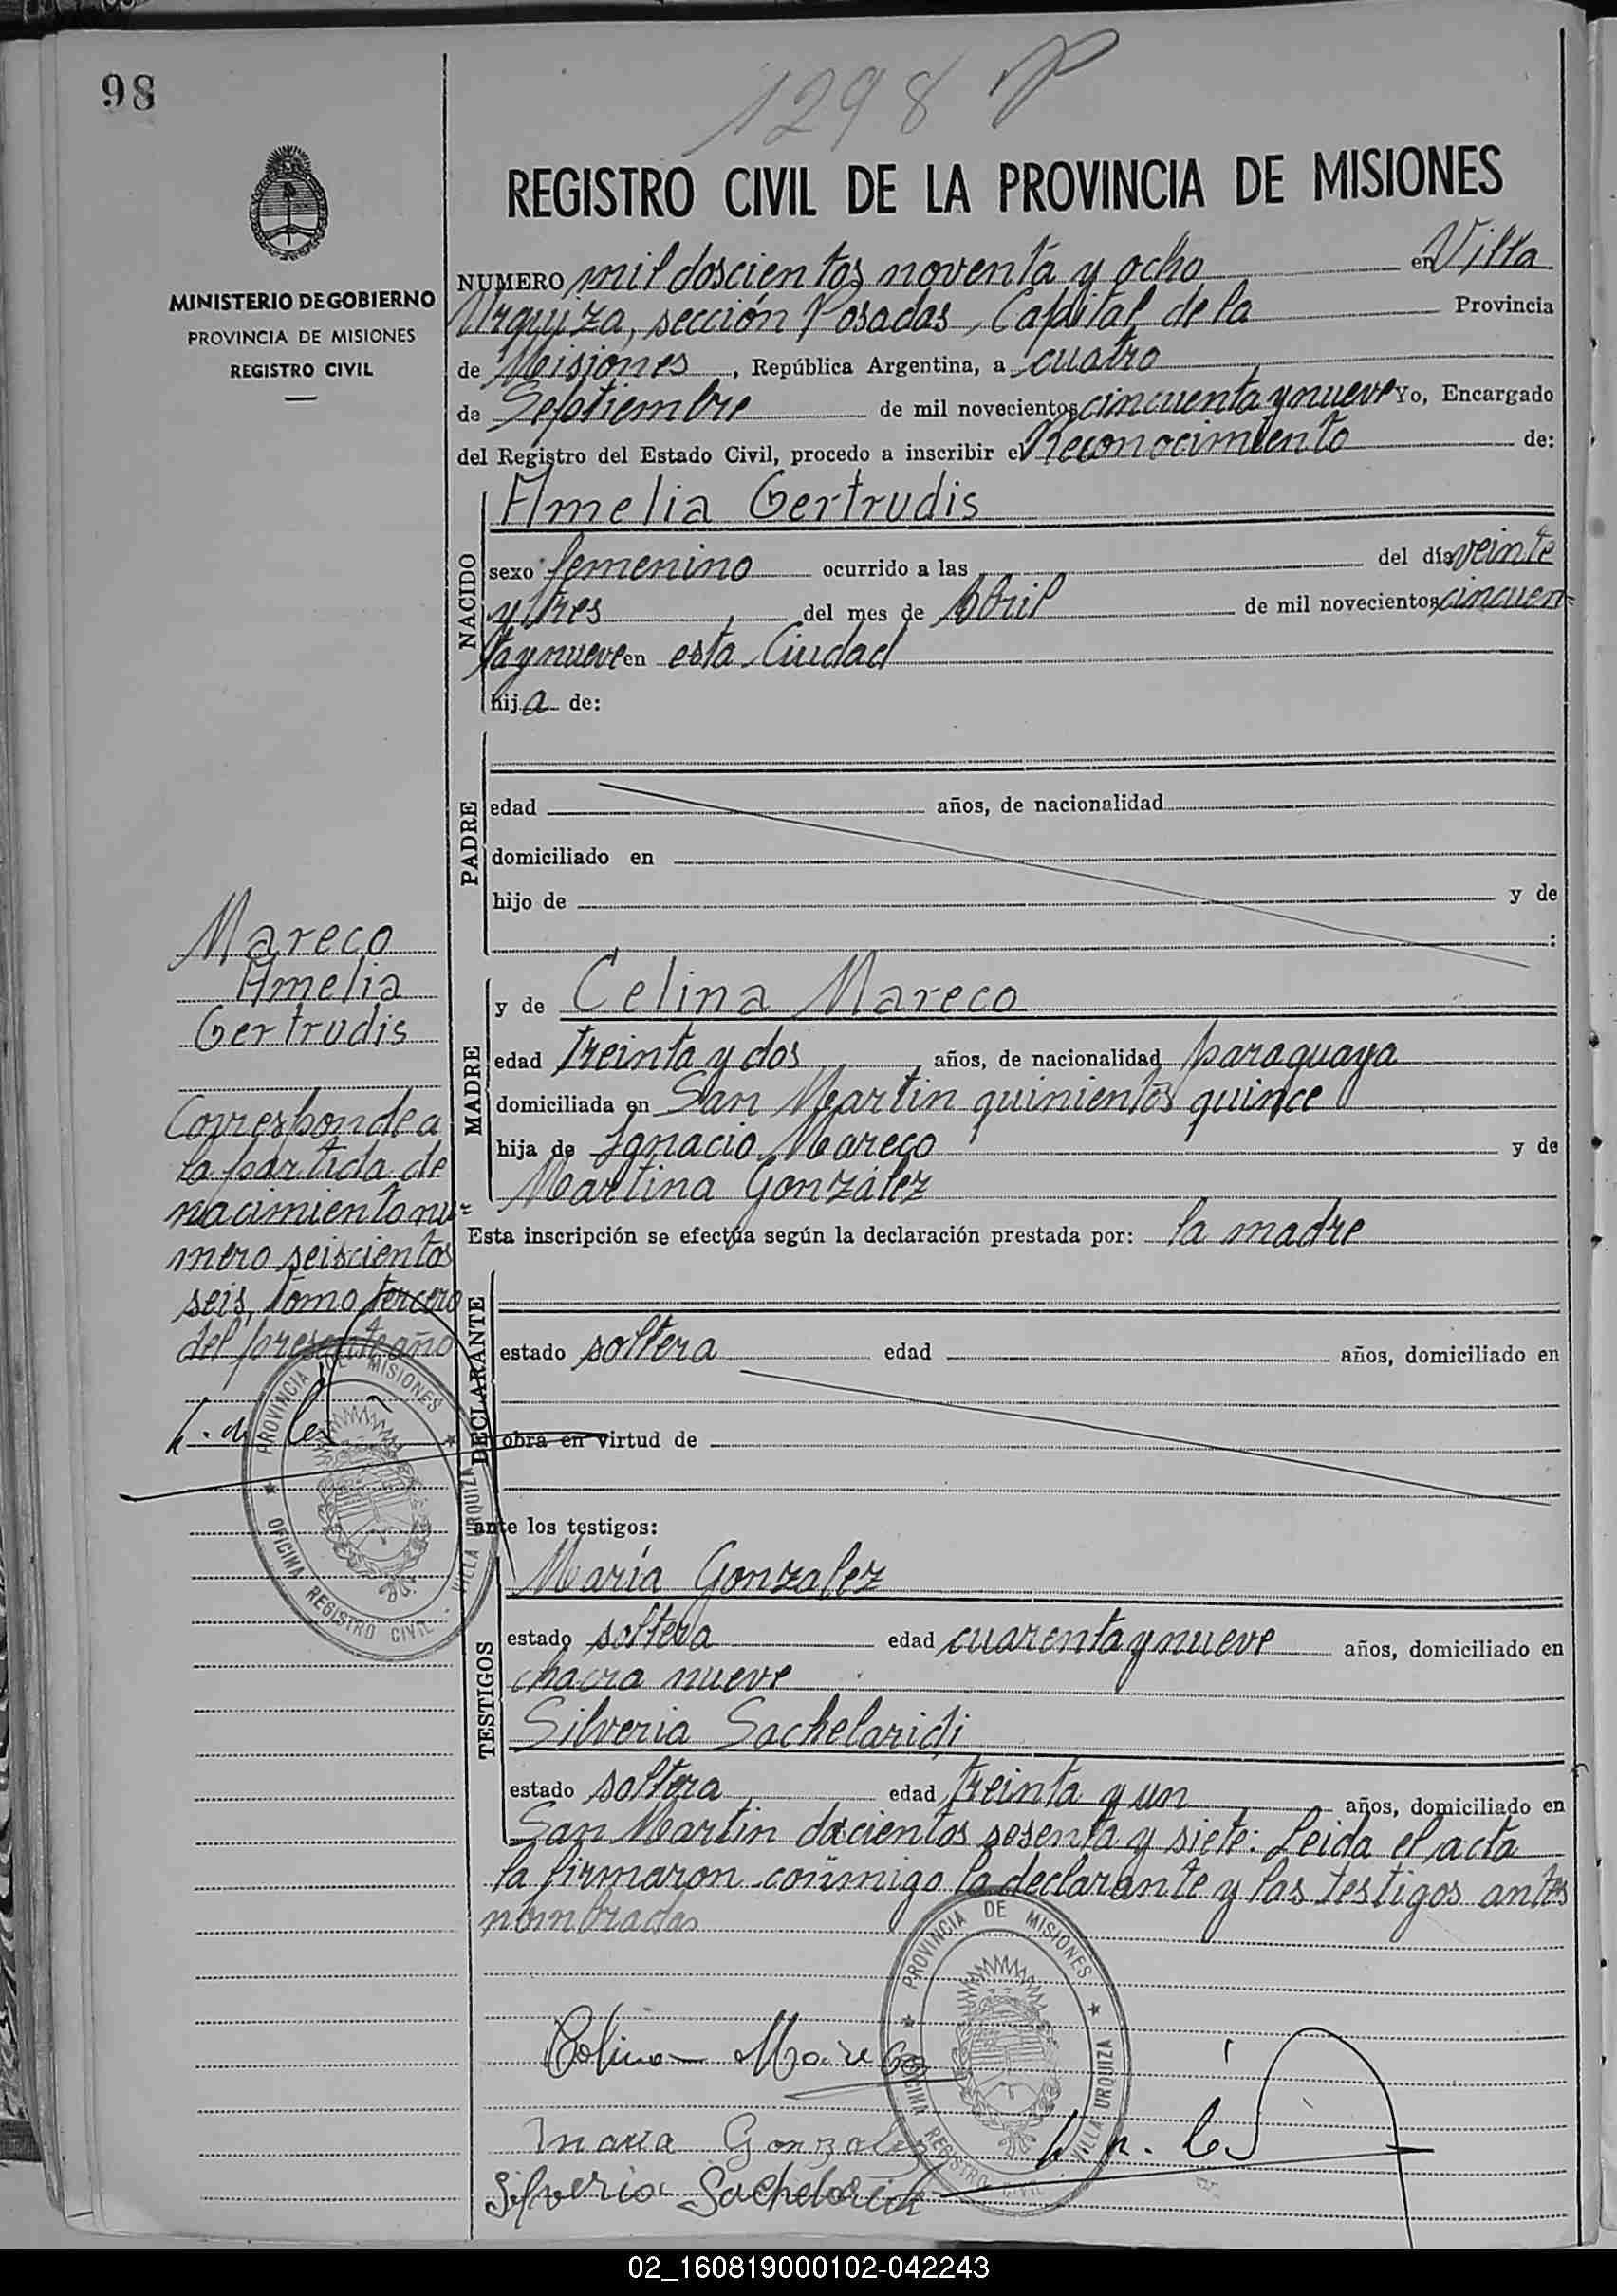 98
1298
MINISTERIO DE GOBIERNO
PROVINCIA DE MISIONES
REGISTRO CIVIL
REGISTRO CIVIL DE LA PROVINCIA DE MISIONES
NUMERO mil doscientos noventa y ocho en Villa
Urquiza, sección Posadas, Capital de la Provincia
de Misiones, República Argentina, a cuatro
de Septiembre de mil novecientos cincuenta y nueve Yo, Encargado
del Registro del Estado Civil, procedo a inscribir el Reconocimiento de:
NACIDO
Amelia Gertrudis
sexo femenino ocurrido a las del día veinte
y tres del mes de Abril de mil novecientos cincuen-
ta y nueve en esta Ciudad
hija de:
PADRE
edad años, de nacionalidad
domiciliado en
hijo de y de
:
Mareco
Amelia
Gertrudis
Corresponde a
la partida de
nacimiento nu-
mero seiscientos
seis, tomo tercero
del presente año
PROVINCIA DE MISIONES
OFICINA REGISTRO CIVIL
VILLA URQUIZA
MADRE
y de Celina Mareco
edad treinta y dos años, de nacionalidad paraguaya
domiciliada en San Martin quinientos quince
hija de Ignacio Mareco y de
Martina González
Esta inscripción se efectúa según la declaración prestada por: la madre
DECLARANTE
estado soltera edad años, domiciliado en
obra en virtud de
ante los testigos:
TESTIGOS
María Gonzalez
estado soltera edad cuarenta y nueve años, domiciliado en
chacra nueve
Silveria Sachelaridi
estado soltera edad treinta y un años, domiciliado en
San Martin docientos sesenta y siete: Leida el acta
la firmaron conmigo la declarante y las testigos antes
nombradas
PROVINCIA DE MISIONES
OFICINA REGISTRO CIVIL
VILLA URQUIZA
Celina Mareco
Maria Gonzalez
Silveria Sachelaridi
02_160819000102-042243